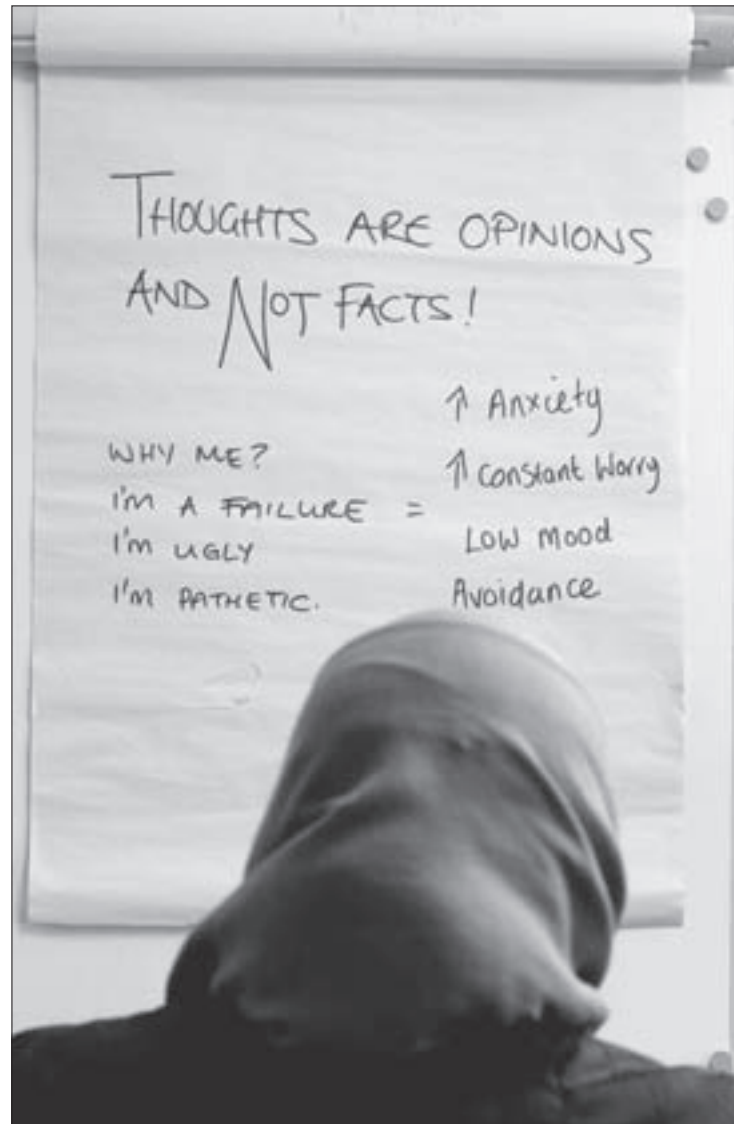 THOUGHTS ARE OPINIONS
AND NOT FACTS!
WHY ME?
I'M A FAILURE =
I'M UGLY
I'M PATHETIC.
↑ Anxiety
↑ Constant Worry
Low mood
Avoidance